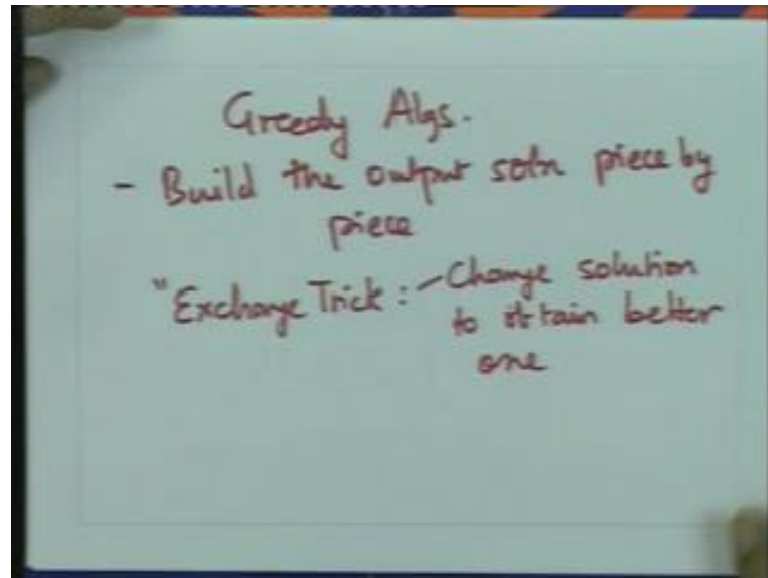 Greedy Algs.
- Build the output soln piece by
piece
"Exchange Trick : - Change solution
to obtain better
one